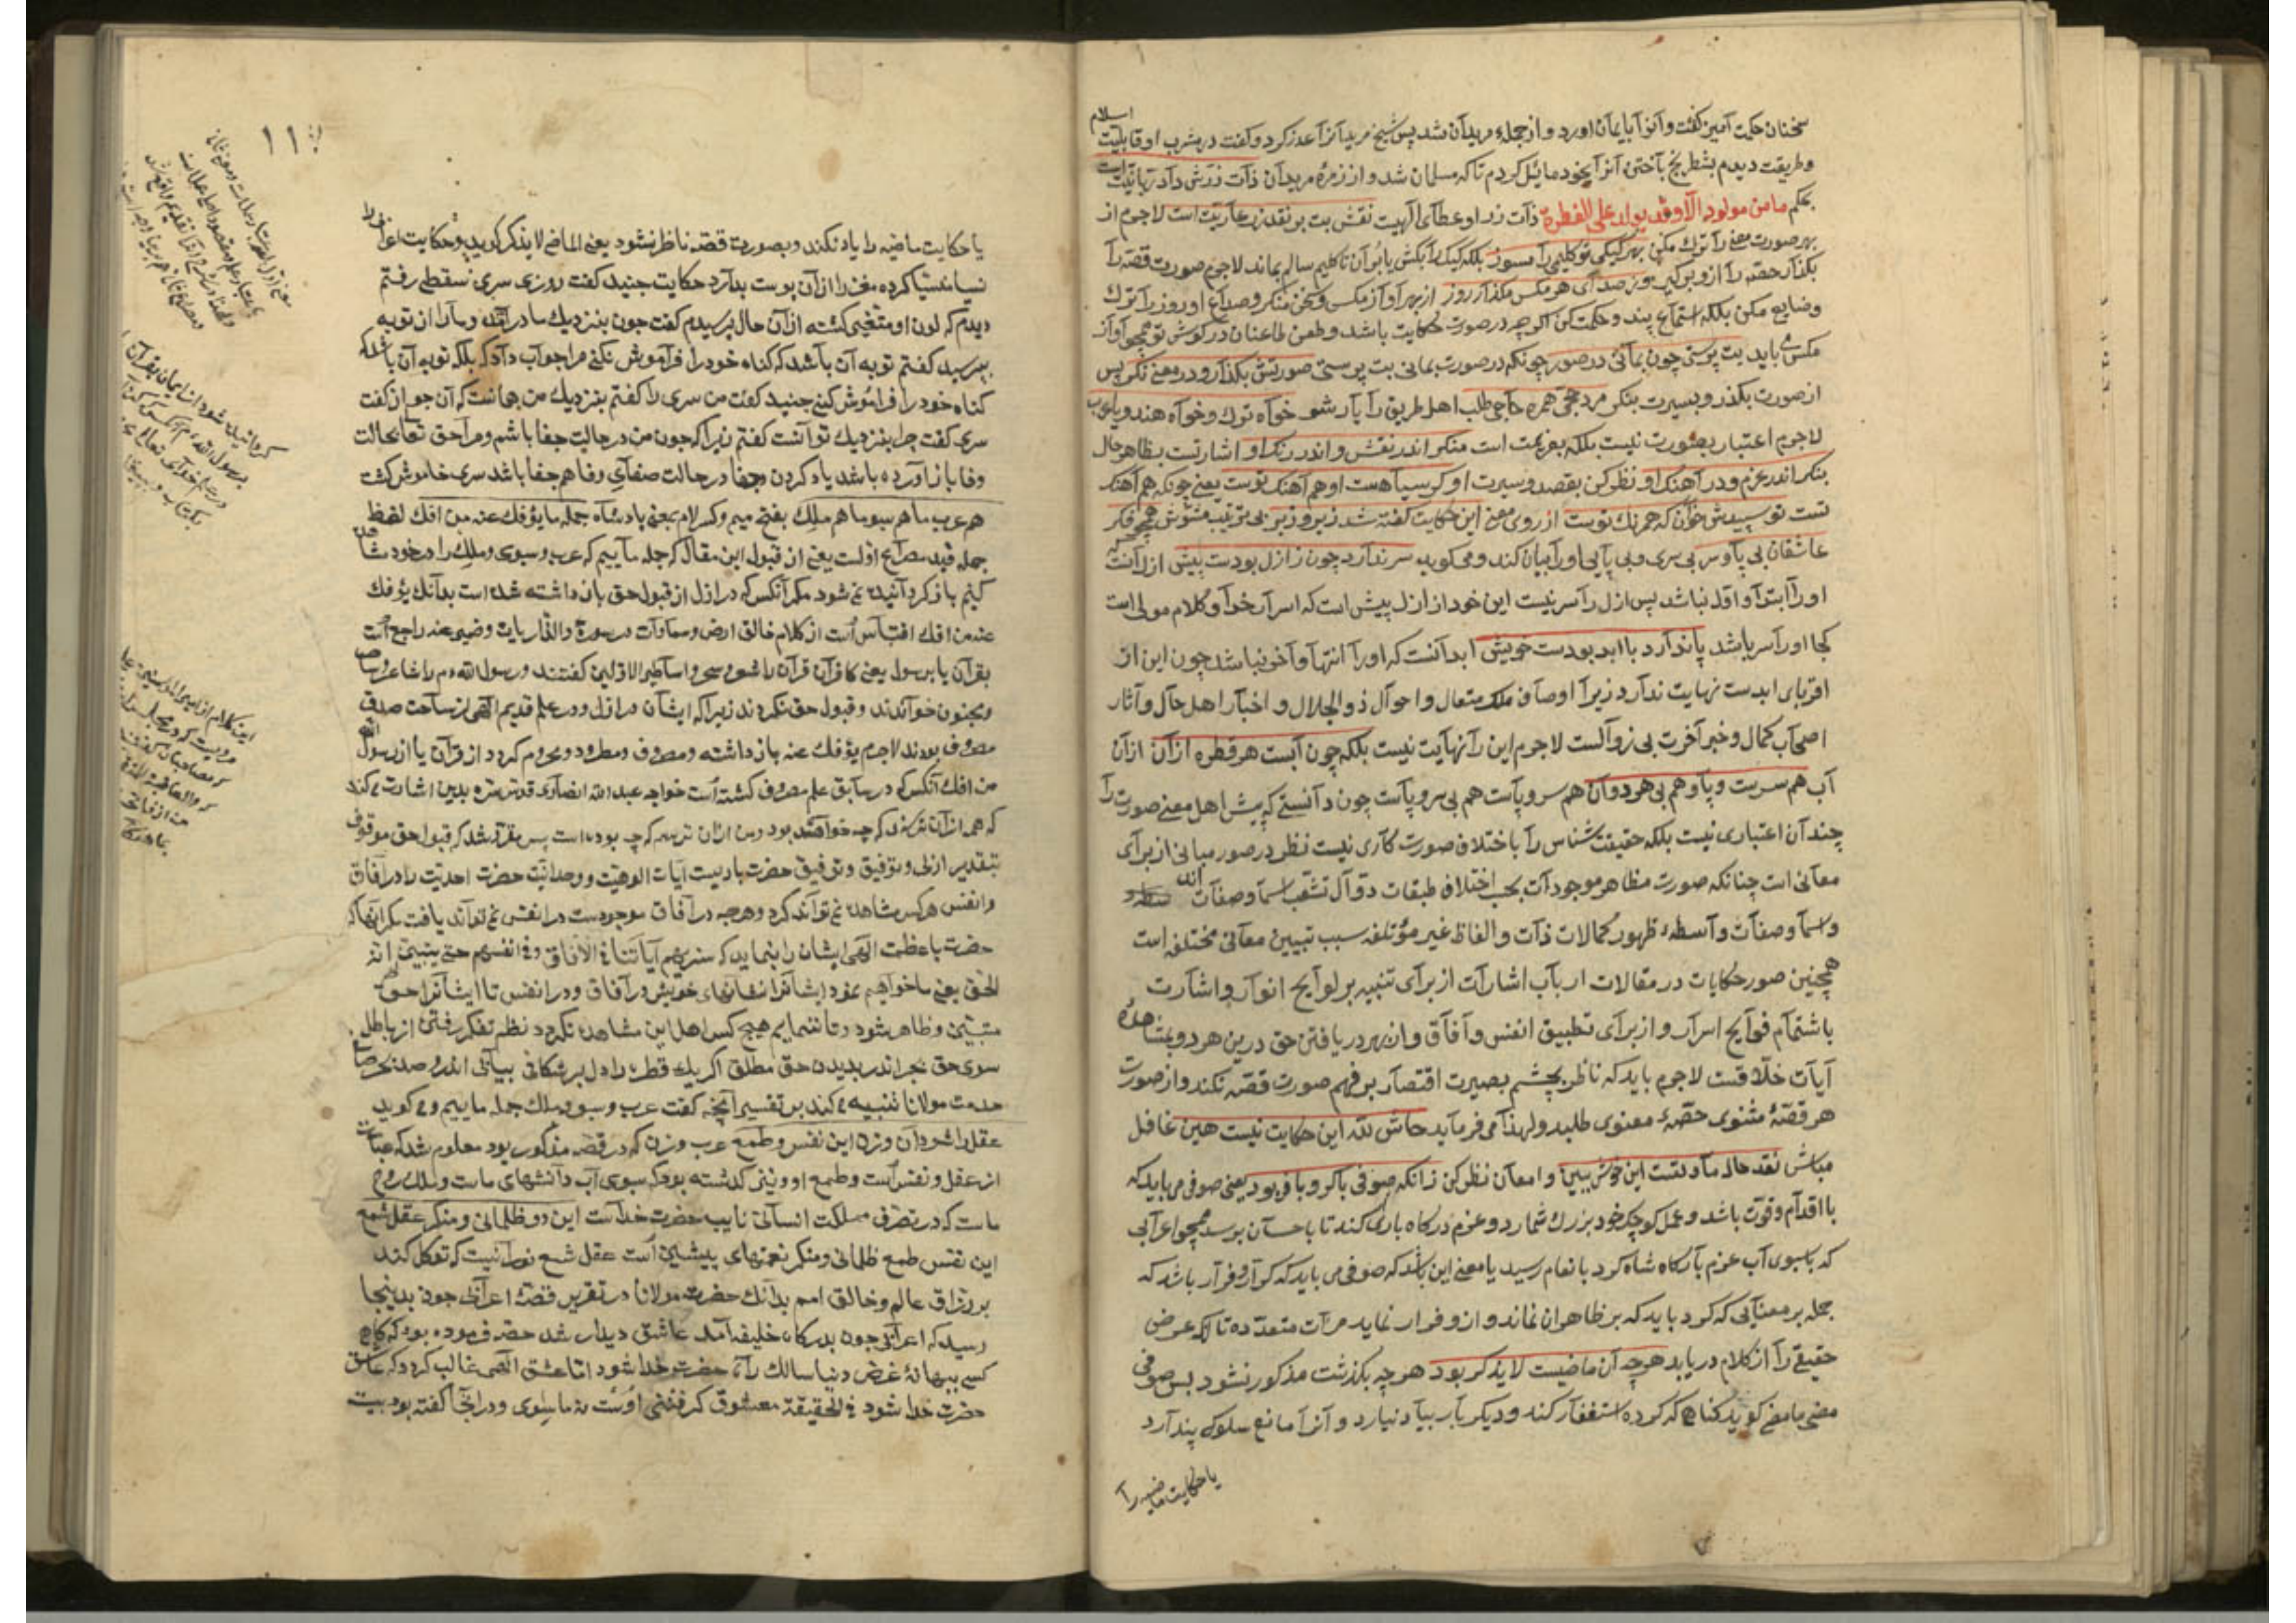 سخنان حکمت آمیز گفت و آنرا بایمان آورد و از جمله مریدان شد پس شیخ مریدانرا عذر کرد و گفت در مشرب او قابلیت اسلام
و طریقت دیدم بشطرنج باختن آنرا بخود مائل کردم تا که مسلمان شد و از زمره مریدان ذات زرش داد ربانیت است
بحکم ما من مولود الا وقد یولد علی الفطرة ذات زر او عطای الهیت نقش بت بر نقد زر عاریتست لاجرم از
بهر صورت معنی را ترک مکن بهر کیکی تو گلیمی را مسوز بلکه کیک را بکش یا بران تا گلیم سالم بماند لاجرم صورت قصه را
بگذار حصه را ازو برگیر وز صدای هر مگس مگذار روز از بهر آواز مگس و سخن منکر و صداع او روز را ترک
و ضایع مکن بلکه استماع پند و حکمت کن اگر چه در صورت حکایت باشد و طعن طاعنان در گوش تو همچو آواز
مگس باید بت پرستی چون بمانی در صور چونکه در صورت بمانی بت پرستی صورتش بگذار و در معنی نگر پس
از صورت بگذر و بسیرت بنگر مرد حجی همره حاجی طلب اهل طریق را یار شو خواه ترک و خواه هندو یا عرب
لاجرم اعتبار بصورت نیست بلکه بعزیمت است منگر اندر نقش و اندر رنگ او اشارتست بظاهر حال
بنگر اندر عزم و در آهنگ او نظر کن بقصد و سیرت او گر سیاهست او هم آهنگ توست یعنی چونکه هم آهنگ
تست تو سپیدش خوان که همرنگ توست از روی معنی این حکایت گفته شد زیر و زبر بی ترتیب مشوش همچو فکر
عاشقان بی پا و سر بی سری و بی پایی او را بیان کند و می گوید سر ندارد چون ز ازل بودست پیش ازل آنست
او را ابتدا و اول نباشد پس ازل را سر نیست این خود از ازل پیش است که اسرار خدا و کلام مولی است
کجا او را سر باشد پا ندارد با ابد بودست خویش ابد آنست که او را انتها و آخر نباشد چون این از
اقربای ابدست نهایت ندارد زیرا اوصاف ملک متعال و احوال ذو الجلال و اخبار اهل حال و آثار
اصحاب کمال و خبر آخرت بی زوالست لاجرم این را نهایت نیست بلکه چون آبست هر قطره ازان ازان
آب هم سرست و پا و هم بی هر دوان هم سر و پاست هم بی سر و پاست چون دانستی که پیش اهل معنی صورت را
چندان اعتباری نیست بلکه حقیقت شناس را با اختلاف صورت کاری نیست نظر در صور مبانی از برای
معانی است چنانکه صورت مظاهر موجودات بحسب اختلاف طبقات دوال تشعب اسما و صفات اند
و اسما و صفات واسطه ظهور کمالات ذات و الفاظ غیر مؤتلفه سبب تبیین معانی مختلفه است
همچنین صور حکایات در مقالات ارباب اشارات از برای تنبیه بر لوایح انوار و اشارت
باشتمام فوایح اسرار و از برای تطبیق انفس و آفاق و از بهر دریافتن حق درین هر دو بمشاهده
آیات خلاقست لاجرم باید که ناظر بچشم بصیرت اقتصار بر فهم صورت قصه نکند و از صورت
هر قصه مثنوی حصه معنوی طلبد و لهذا می فرماید حاش لله این حکایت نیست هین غافل
مباش نقد حال ما و تست این خوش ببین و امعان نظر کن زانکه صوفی با کر و با فر بود یعنی صوفی می باید که
با اقدام و قوت باشد و عمل کوچک خود بزرگ شمارد و عزم درگاه باری کند تا باحسان برسد همچو اعرابی
که با سبوی آب عزم بارگاه شاه کرد بانعام رسید یا معنی این باشد که صوفی می باید که کرار و فرار باشد که
حمله بر معنایی که کرد باید که بر ظاهر آن نماند و ازو فرار نماید مرات متعدده تا آنکه غرض
حقیقی را از کلام دریابد هرچه آن ماضیست لا یذکر بود هرچه بگذشت مذکور نشود پس صوفی
مضی ما مضی گوید گناهی که کرده استغفار کند و دیگر بار بیاد نیارد و آنرا مانع سلوک پندارد
یا حکایت ماضیه را
۱۱
یا حکایت ماضیه را یاد نکند و بصورت قصه ناظر نشود یعنی الماضی لا یذکر گوید و حکایت اعرابی را
نسیا منسیا کرده مغز را از آن پوست بدارد حکایت جنید گفت روزی سری سقطی رفتم
دیدم که لون او متغیر گشته از آن حال پرسیدم گفت جون بنزدیک ما در آمد و مارا از توبه
بپرسید گفتم توبه آن باشد که گناه خود را فراموش نکنی مرا جواب داد که بلکه توبه آن باشد که
گناه خود را فراموش کنی جنید گفت من سری را گفتم بنزدیک من همانست که آن جوان گفت
سری گفت چرا بنزدیک تو آنست گفتم زیرا که جون من در حالت جفا باشم و مرا حق تعا بحالت
وفا باز آورده باشد یاد کردن جفا در حالت صفای وفا هم جفا باشد سری خاموش گشت
هم عرب ما هم سبو ما هم ملک بفتح میم و کسر لام بمعنی پادشاه جمله ما یؤفک عنه من افک لفظ
جمله قید مصراع اولست یعنی از قبول این مقال که جمله ماییم که عرب و سبوی و ملک را در خود مشاهده
کنیم باز گردانیده نمی شود مگر آنکس که در ازل از قبول حق باز داشته شده است بدآنک یؤفک
عنه من افک اقتباس است از کلام خالق ارض و سماوات در سوره والذاریات و ضمیر عنه راجع است
بقرآن یا برسول یعنی کافران قرآن را شعر و سحر و اساطیر الاولین گفتند و رسول الله م را شاعر و ساحر
و مجنون خواندند و قبول حق نکردند زیرا که ایشان در ازل و در علم قدیم الهی از ساحت صدق
مصروف بودند لاجرم یؤفک عنه باز داشته و مصروف و مطرود و محروم گردد از قرآن یا از رسول الله
من افک آنکس که در سابق علم مصروف گشته است خواجه عبد الله انصاری قدس سره بدین اشارت می کند
که همه از آن ترسند که چه خواهد بود و من ازان ترسم که چه بوده است پس مقرر شد که قبول حق موقوف
بتقدیر ازلی و بتوفیق و توفیق حضرت باریست آیات الوهیت و وحدانیت حضرت احدیت را در آفاق
و انفس هر کس مشاهده نمی تواند کرد و هرچه در آفاق موجودست در انفس نمی تواند یافت مگر آنها که
حضرت باعظمت الهی ایشان را بنماید که سنریهم آیاتنا فی الآفاق و فی انفسهم حتی یتبین انه
الحق یعنی ما خواهیم نمود ایشانرا نشانهای خویش در آفاق و در انفس تا ایشانرا حق
متبین و ظاهر شود و تا ننماییم هیچ کس اهل این مشاهده نگردد نظم تفکر رفتن از باطل
سوی حق بجز اندر بدیدن حق مطلق اگر یک قطره را دل بر شکافی بیابی اندرو صد بحر صافی
خدمت مولانا تنبیه می کند بر تفسیر آنچه گفت عرب و سبو و ملک جمله ماییم و می گوید
عقل را شو دان و زن این نفس و طمع عرب و زن که در قصه مذکور بود معلوم شد که عبارت
از عقل و نفس است و طمع او و نیز گذشته بود که سبوی آب دانشهای ماست و ملک روح
ماست که در تصرف مملکت انسانی نایب حضرت خداست این دو ظلمانی و منکر عقل شمع
این نفس طمع ظلمانی و منکر نعمتهای پیشین است عقل شمع نورانیست که توکل کند
بر رزاق عالم و خالق امم بدانک حضرت مولانا در تقریر قصه اعرابی جون بدینجا
رسید که اعرابی جون بدرگاه خلیفه آمد عاشق دیدار شد حضر فرموده بود که گاهی
کسی ببهانه غرض دنیا سالک راه حضرت خدا شود اما عشق الهی غالب گردد که عاشق
حضرت خدا شود فی الحقیقة معشوق گرفتنی اوست نه ماسوی و در آنجا گفته بود بیت